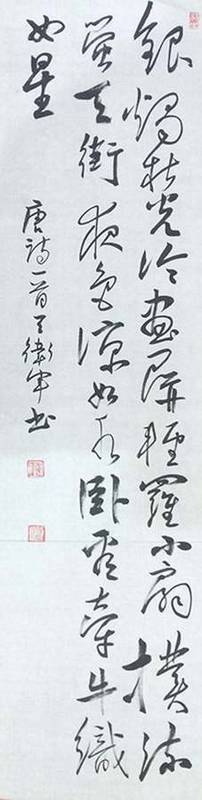 銀燭秋光冷畫屏輕羅小扇撲流
螢天街夜色涼如水臥看牽牛織
女星
唐詩一首王衛軍书